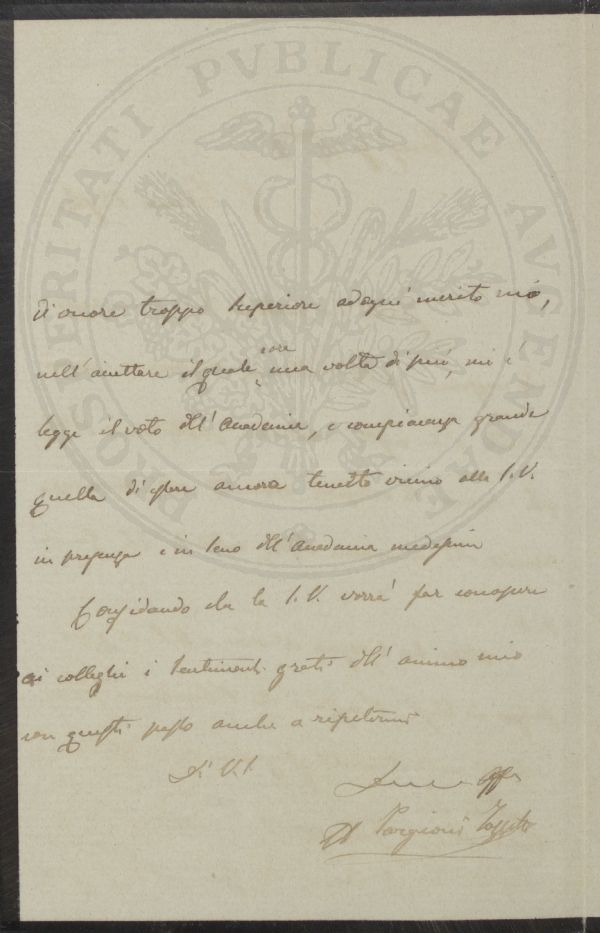 PROSPERITATI PVBLICAE AVGENDAE
di onore troppo superiore ad ogni merito mio,
nell'accettare il quale ora una volta di più, mi è
legge il voto dell'Accademia, e compiacenza grande
quella di essere ancora tenuto vicino alla S.V.
in presenza e in seno dell'Accademia medesima
Confidando che la S.V. vorrà far conoscere
ai colleghi i sentimenti grati dell'animo mio
con questi passo anche a ripetermi
Di V.S.
A Targioni Tozzetti